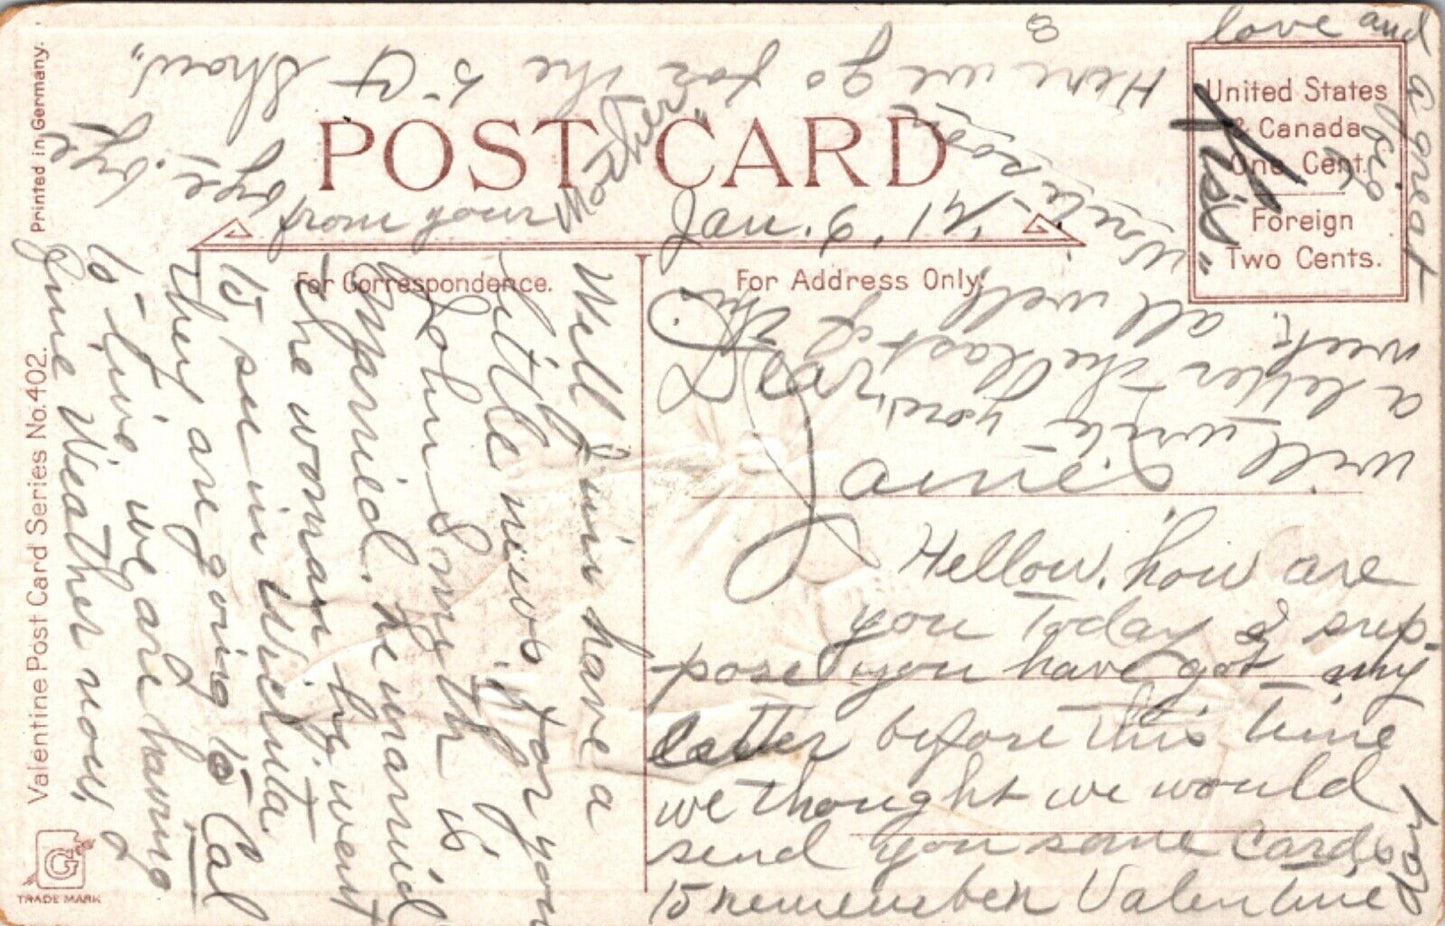 POST CARD
United States
& Canada
One Cent.
Foreign
Two Cents.
For Correspondence.
For Address Only.
Printed in Germany.
Valentine Post Card Series No. 402.
G
TRADE MARK
Jan. 9'
Dear
James
Hellow. how are
you Today I sup-
pose you have got my
letter before this time
we thought we would
send you some Cards
to rememeber Valentine
Day
Well Jim have a
little news for you
John Smith is
Married. he married
the woman he went
to see in Wichita.
they are going to Cal
to live, we are having
fine Weather now,
good
by. bye
from
Mother
Here we go for the 5 ct Show.
will write you a letter the last of this
week.
all well
Write soon
love and
a great
big
"Kiss"